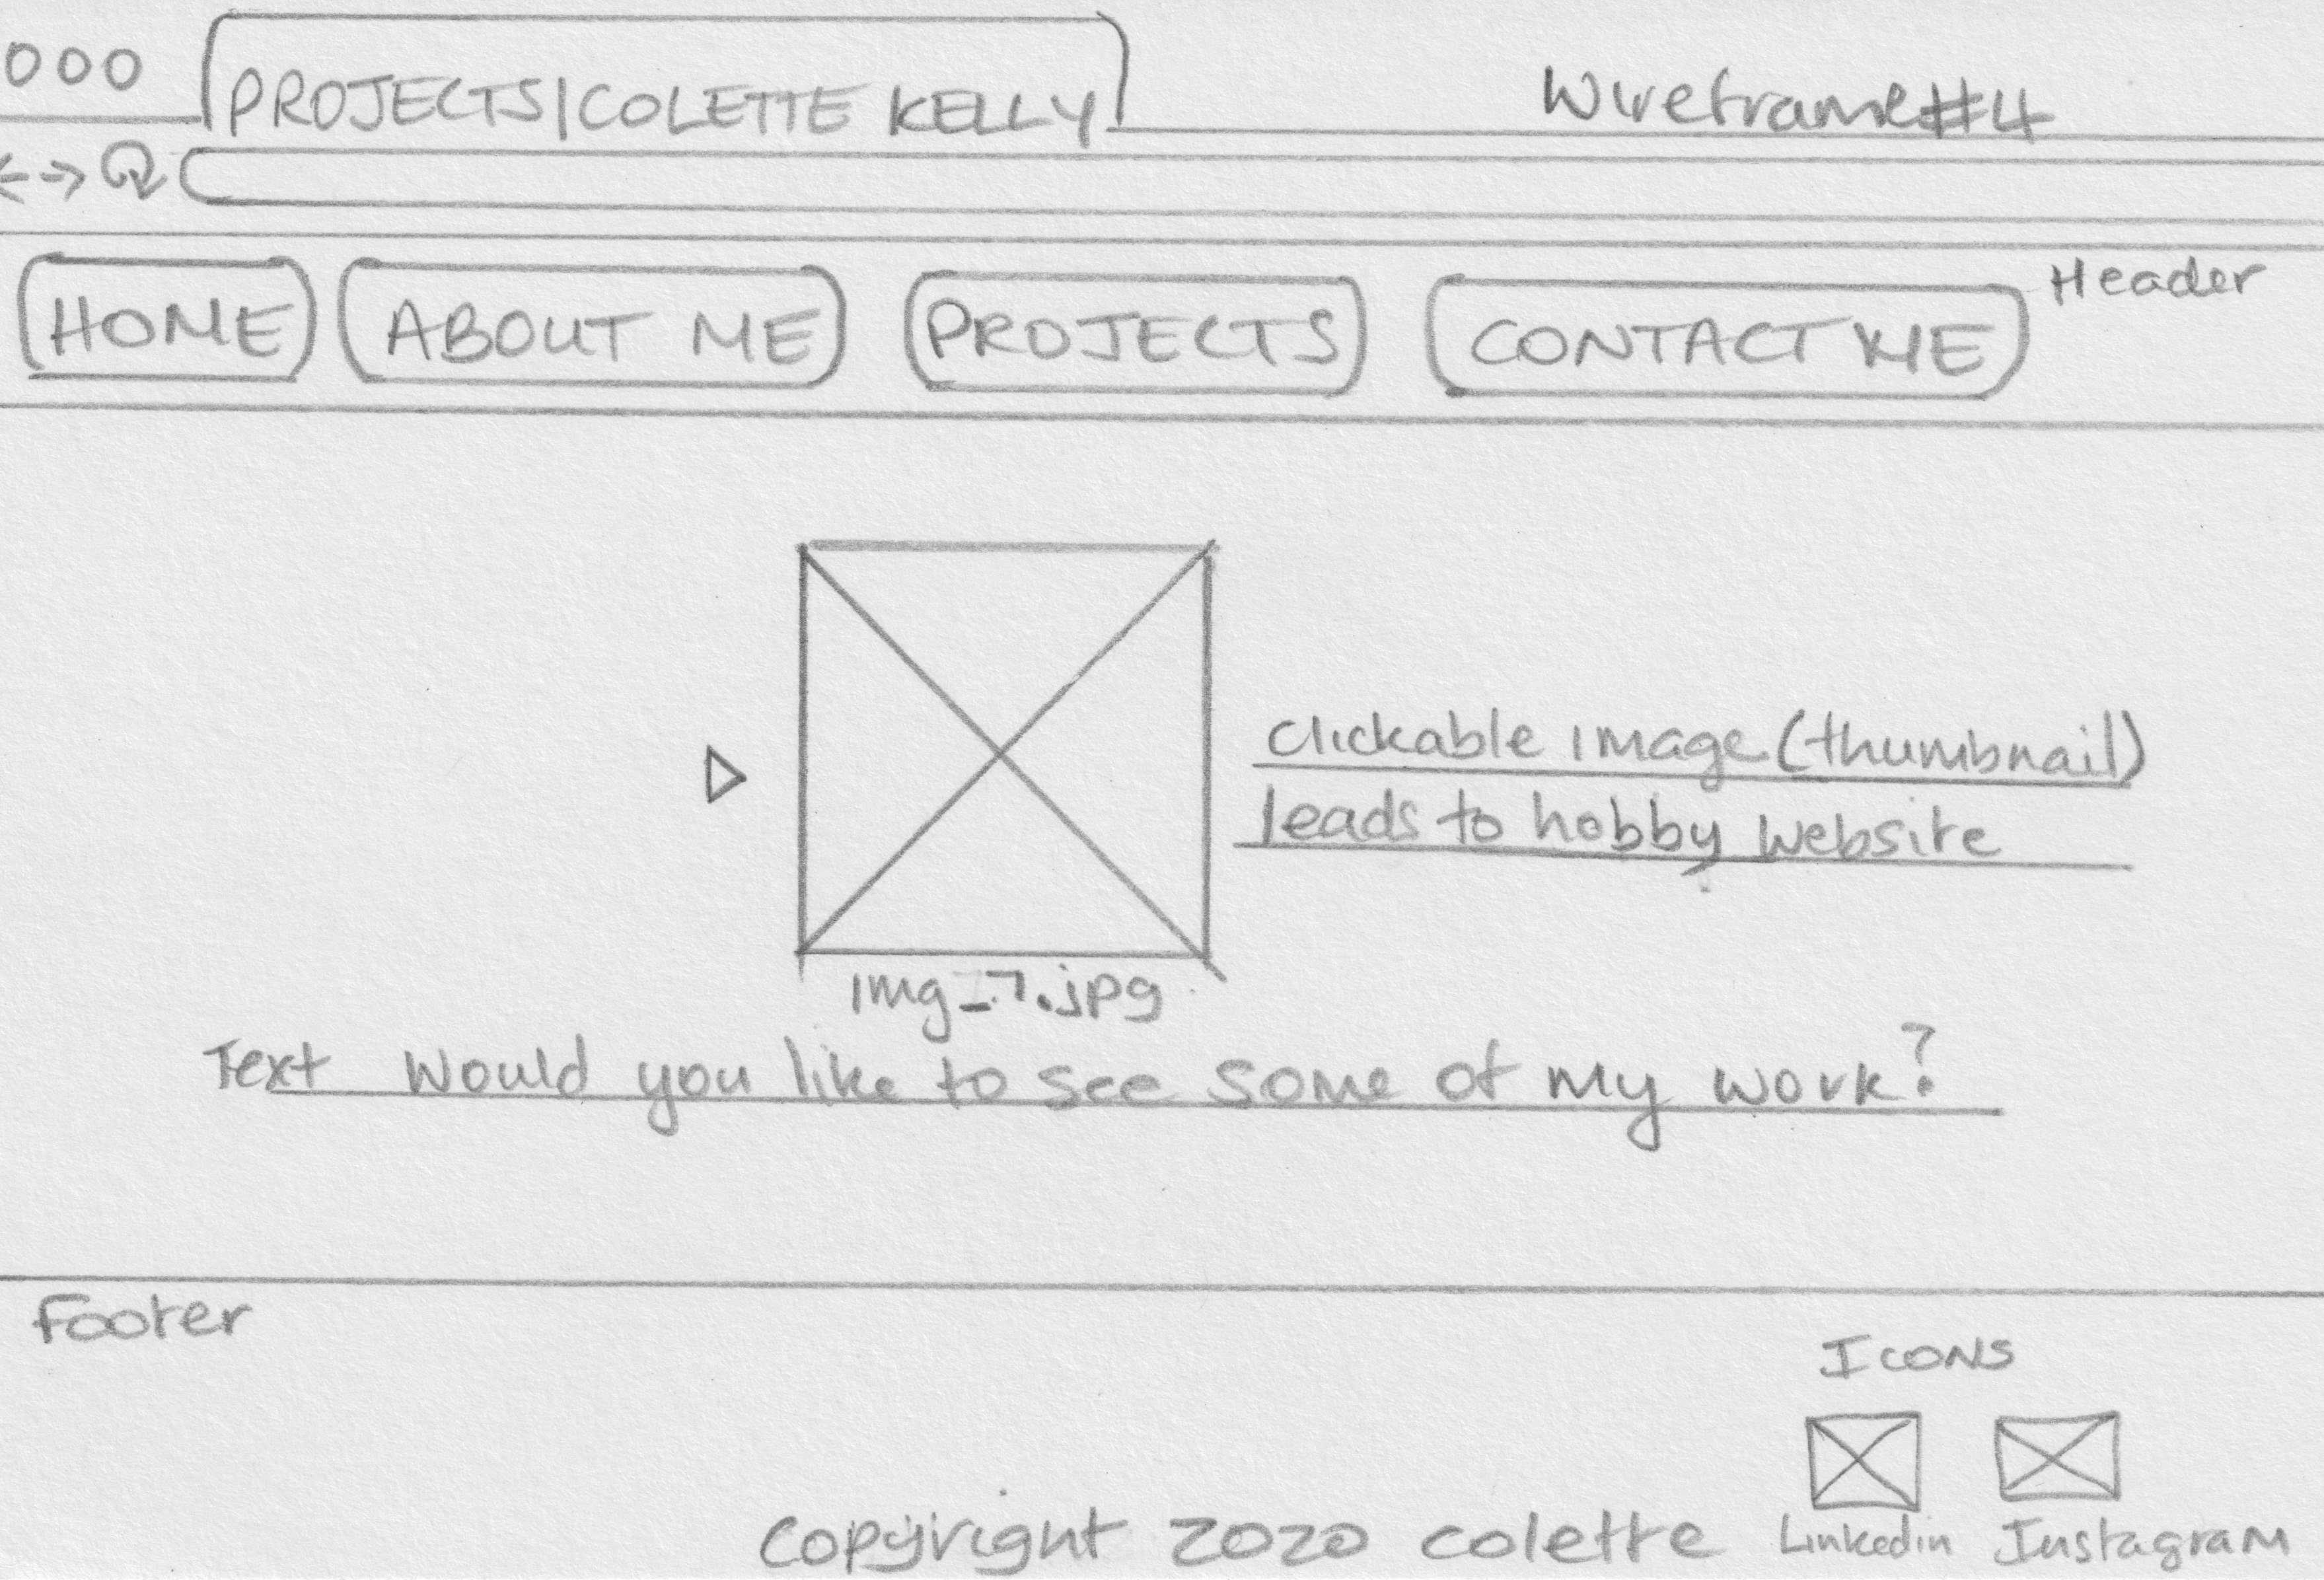 PROJECTS|COLETTE KELLY
Wireframe#4
HOME
ABOUT ME
PROJECTS
CONTACT ME
Header
Clickable image (thumbnail)
leads to hobby website
img_7.jpg
Text Would you like to see some of my work?
Footer
Icons
Copyright 2020 Colette
Linkedin
Instagram